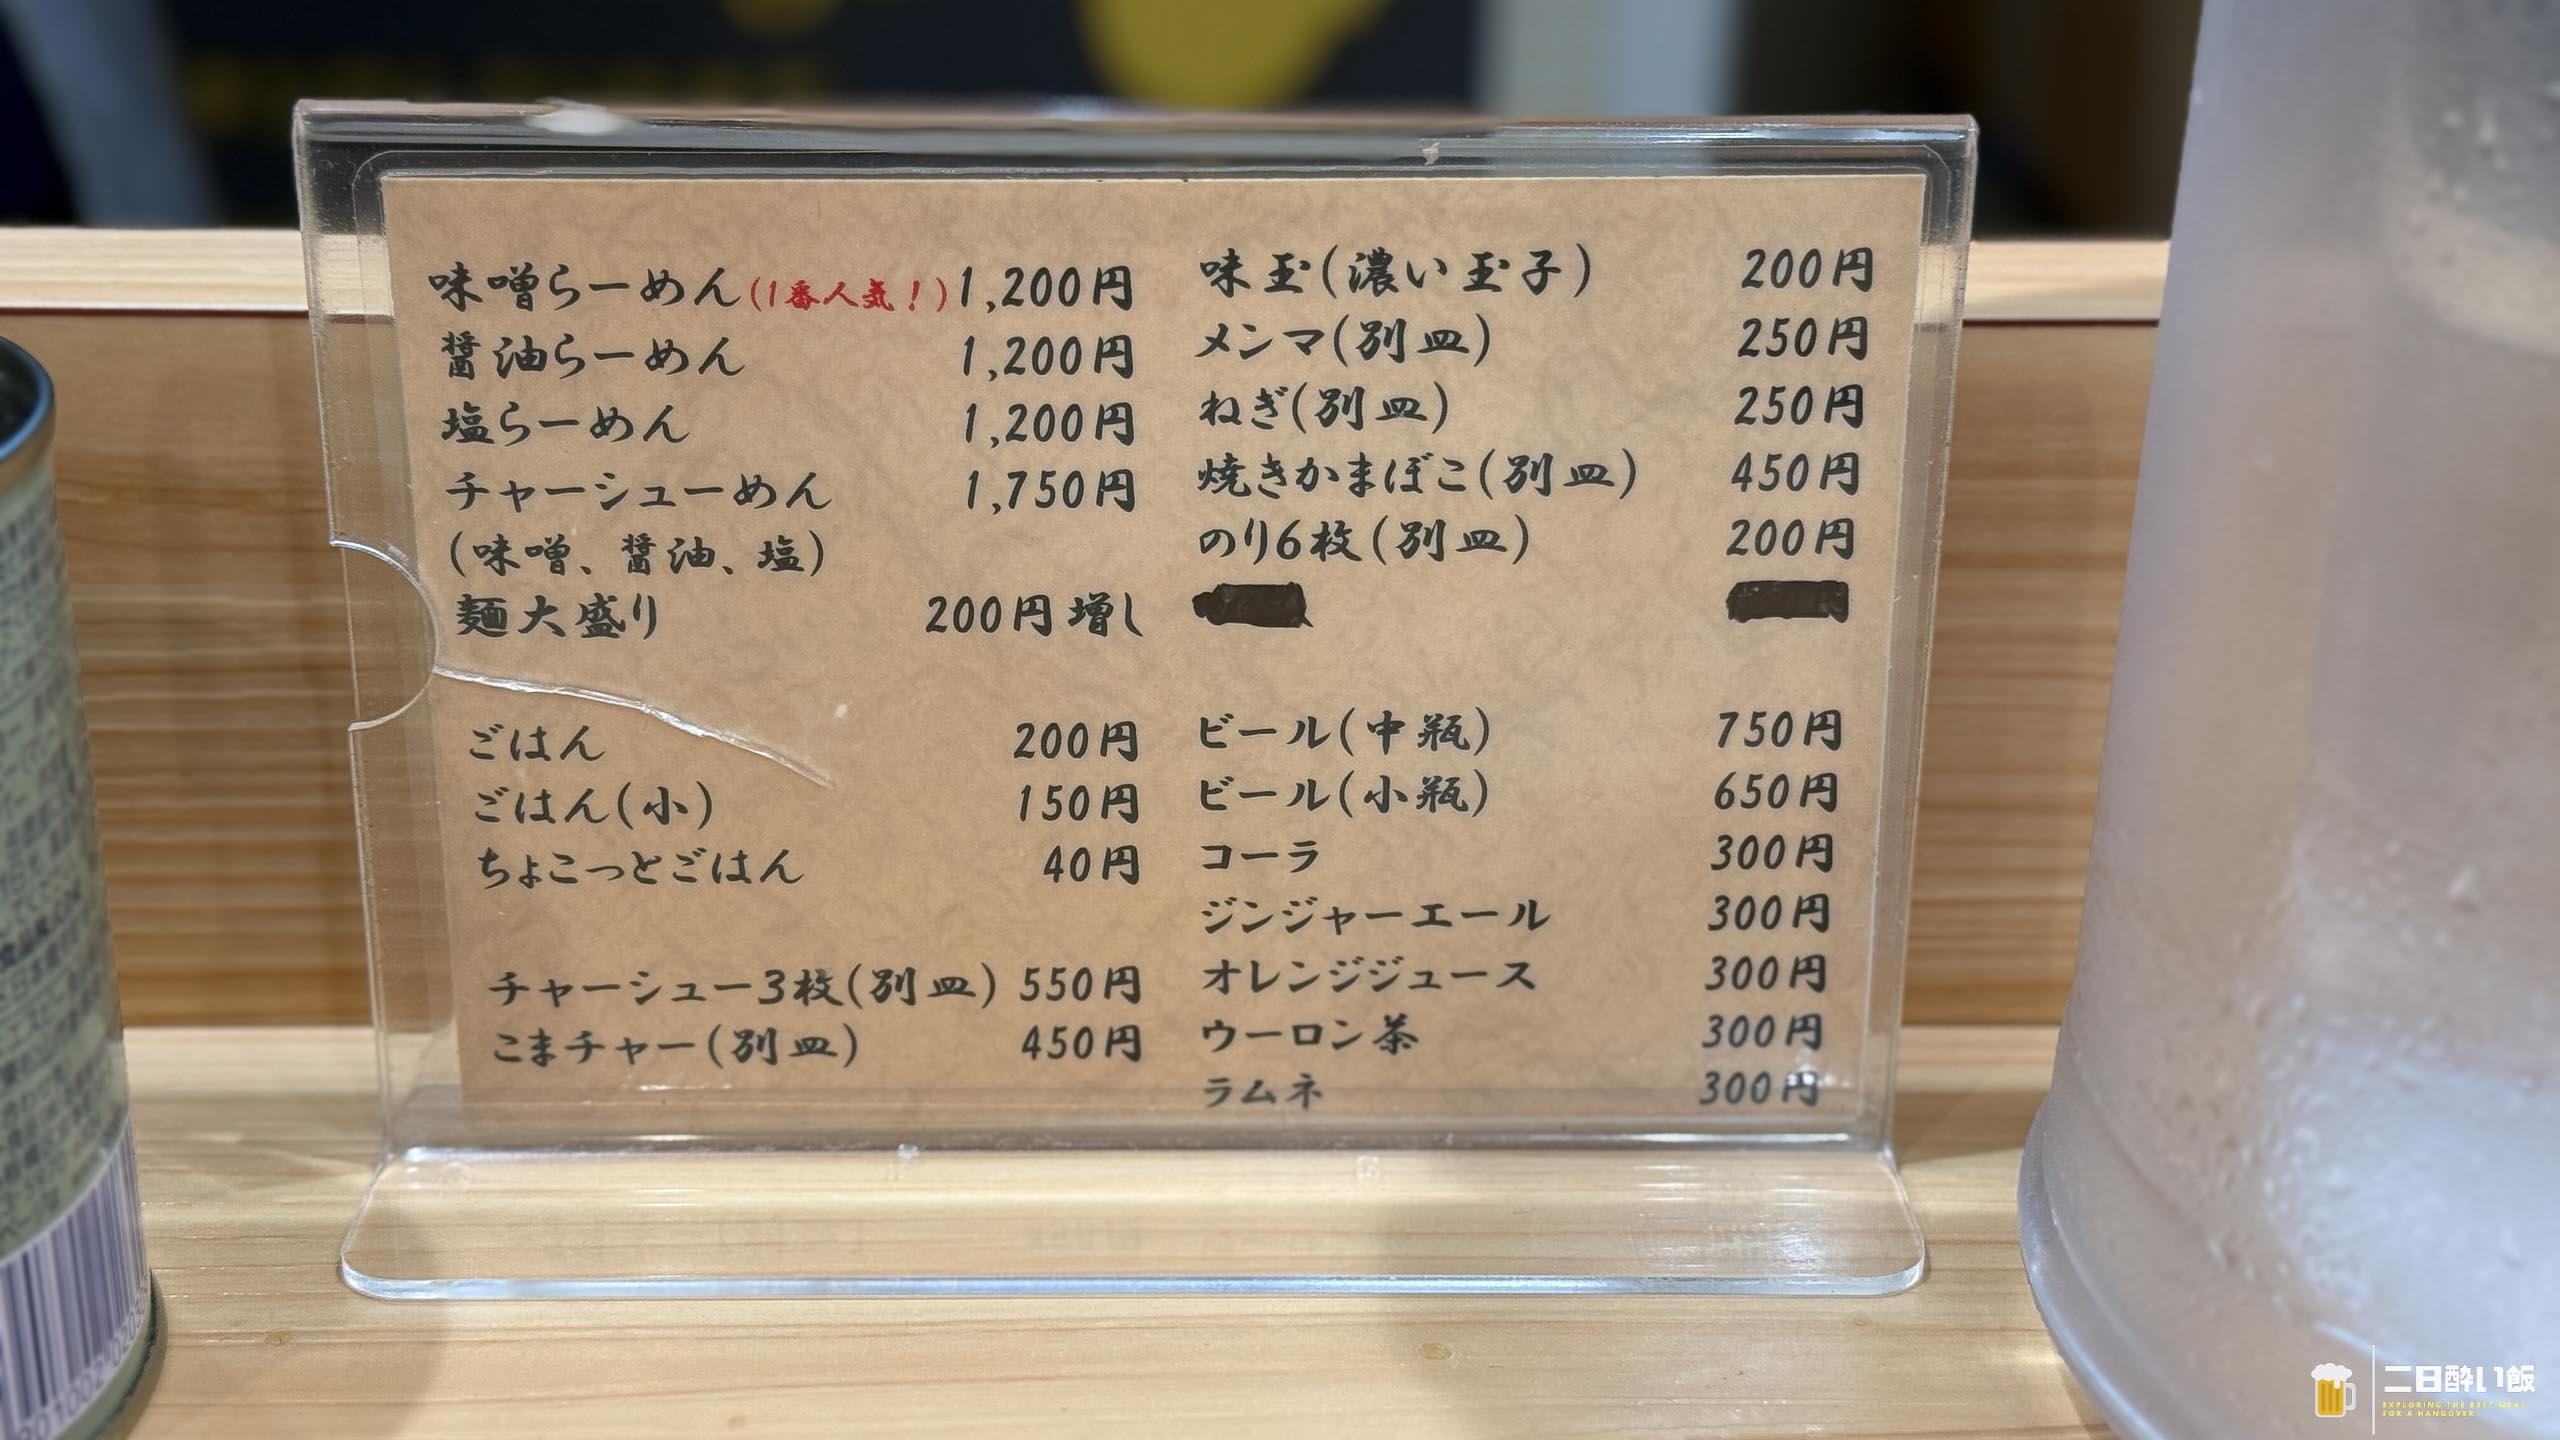 味噌らーめん(1番人気！) 1,200円
醤油らーめん 1,200円
塩らーめん 1,200円
チャーシューめん 1,750円
(味噌、醤油、塩)
麺大盛り 200円増し
ごはん 200円
ごはん(小) 150円
ちょこっとごはん 40円
チャーシュー3枚(別皿) 550円
こまチャー(別皿) 450円
味玉(濃い玉子) 200円
メンマ(別皿) 250円
ねぎ(別皿) 250円
焼きかまぼこ(別皿) 450円
のり6枚(別皿) 200円
ビール(中瓶) 750円
ビール(小瓶) 650円
コーラ 300円
ジンジャーエール 300円
オレンジジュース 300円
ウーロン茶 300円
ラムネ 300円
二日酔い飯
EXPLORING THE BEST MEAL
FOR A HANGOVER